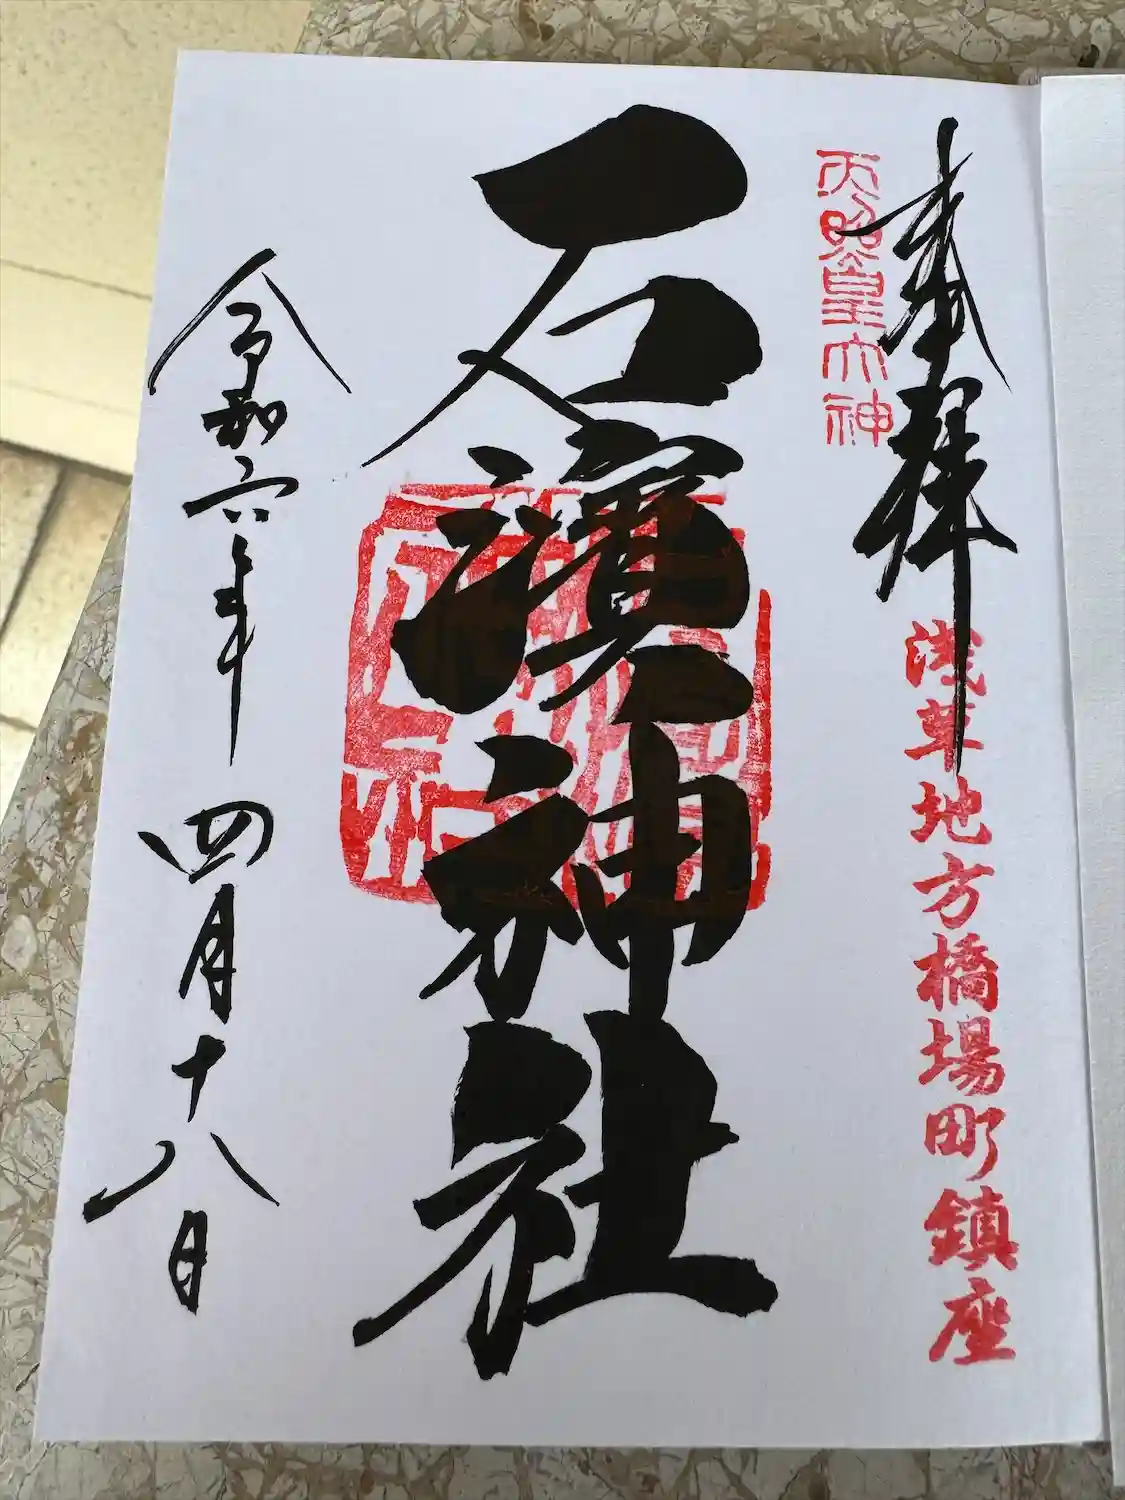 奉拝
浅草地方橋場町鎮座
天照皇大神
石濱神社
令和六年
四月十八日